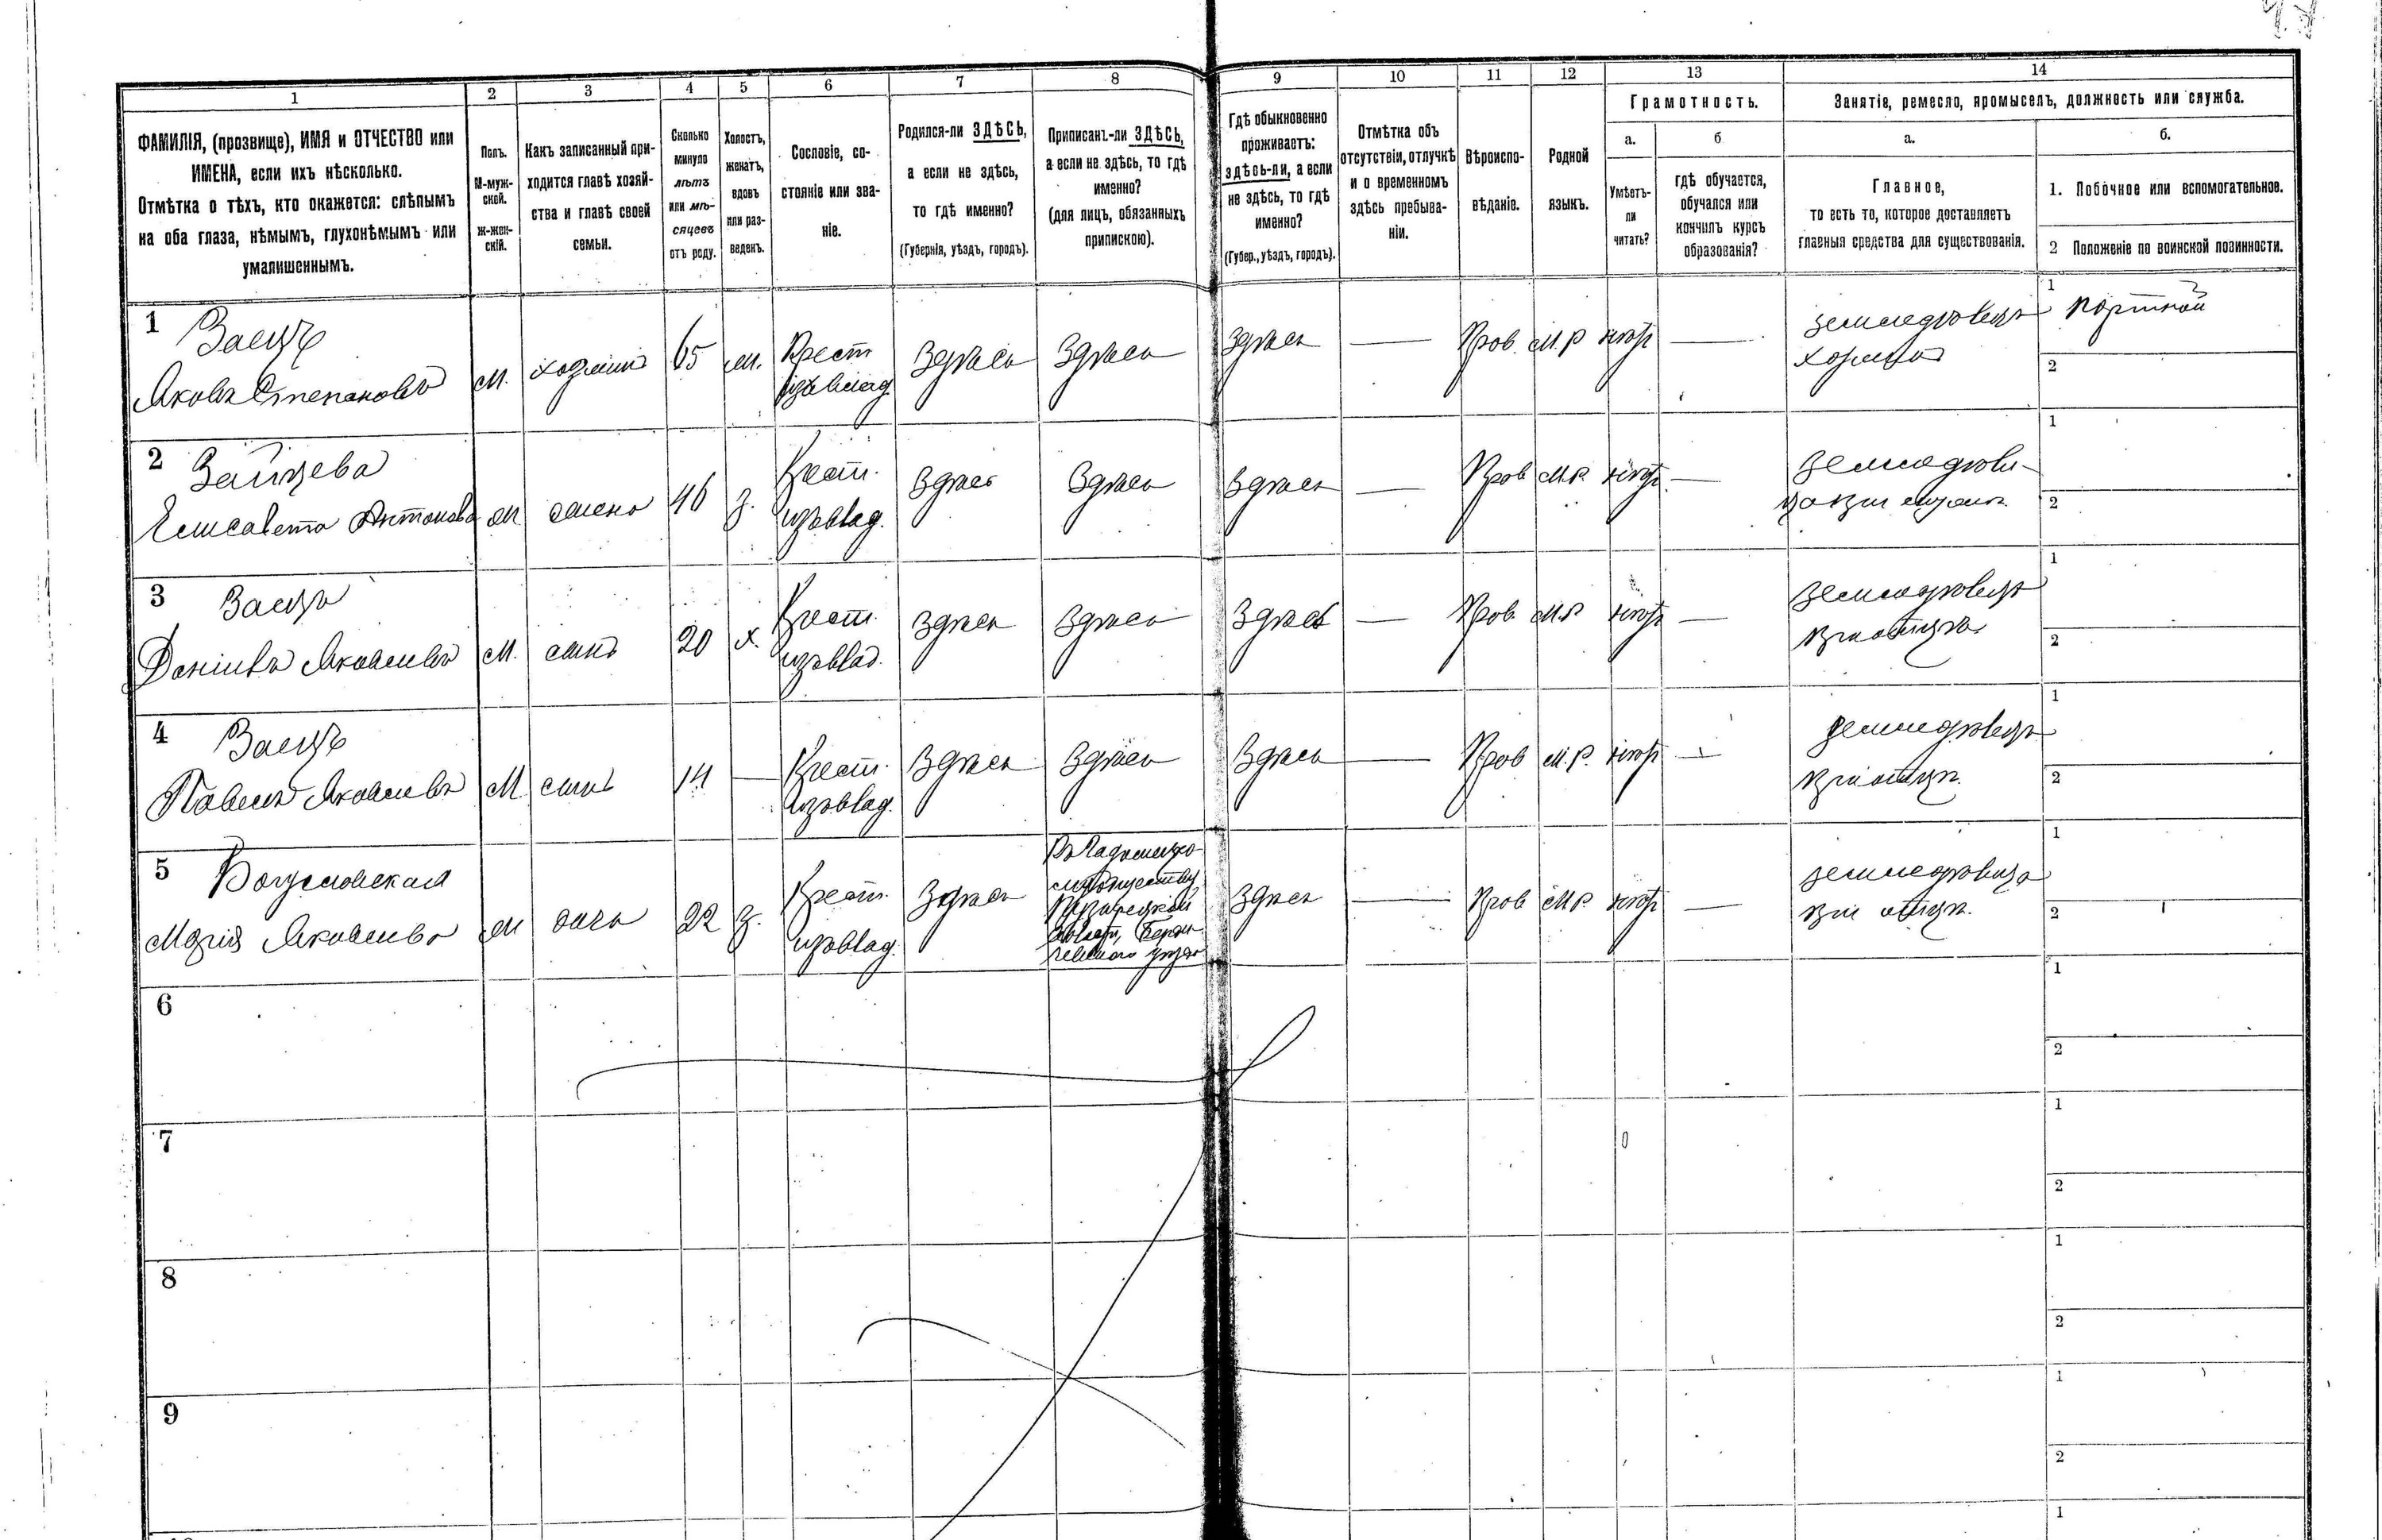 1 2 3 4 5 6 7 8 9 10 11 12 13 14
ФАМИЛІЯ, (прозвище), ИМЯ и ОТЧЕСТВО или
ИМЕНА, если ихъ нѣсколько.
Отмѣтка о тѣхъ, кто окажется: слѣпымъ
на оба глаза, нѣмымъ, глухонѣмымъ или
умалишеннымъ.
Полъ.
М-муж-
ской.
Ж-жен-
скій.
Какъ записанный при-
ходится главѣ хозяй-
ства и главѣ своей
семьи.
Сколько
минуло
лѣтъ
или мѣ-
сяцевъ
отъ роду.
Холостъ,
женатъ,
вдовъ
или раз-
веденъ.
Сословіе, со-
стояніе или зва-
ніе.
Родился-ли ЗДѢСЬ,
а если не здѣсь,
то гдѣ именно?
(Губернія, уѣздъ, городъ).
Приписанъ-ли ЗДѢСЬ,
а если не здѣсь, то гдѣ
именно?
(для лицъ, обязанныхъ
припискою).
Гдѣ обыкновенно
проживаетъ:
здѣсь-ли, а если
не здѣсь, то гдѣ
именно?
(Губер., уѣздъ, городъ).
Отмѣтка объ
отсутствіи, отлучкѣ
и о временномъ
здѣсь пребыва-
ніи.
Вѣроиспо-
вѣданіе.
Родной
языкъ.
Грамотность.
а.
Умѣетъ-
ли
читать?
б
гдѣ обучается,
обучался или
кончилъ курсъ
образованія?
Занятіе, ремесло, промыселъ, должность или служба.
а.
Главное,
то есть то, которое доставляетъ
главныя средства для существованія.
б.
1. Побочное или вспомогательное.
2 Положеніе по воинской повинности.
1 Заецъ
Яковъ Степановъ м. хозяинъ 65 ж. Крест Здѣсь Здѣсь Здѣсь — Прав. М.Р нѣтъ — земледѣлецъ
хозяинъ
1 портной
2
2 Зайцева
Елисавета Антонова ж жена 46 з. Крест. изъ влад. Здѣсь Здѣсь Здѣсь — Прав М.Р. нѣтъ — Земледѣли-
1
2
3 Заецъ
Даніилъ Яковлевъ М. сынъ 20 х. Крест. изъ влад. Здѣсь Здѣсь Здѣсь — Прав. М.Р нѣтъ — Земледѣлецъ
при отцѣ
1
2
4 Заецъ
Павелъ Яковлевъ М сынъ 14 — Крест. изъ влад. Здѣсь Здѣсь Здѣсь — Прав М.Р. нѣтъ — Земледѣлецъ
при отцѣ.
1
2
5 Богуславская
Марія Яковлева ж дочь 22 з. Крест. изъ влад. Здѣсь
Здѣсь — Прав М.Р. нѣтъ — земледѣлица
при отцѣ.
1
2
6
1
2
7
1
2
8
1
2
9
1
2
1